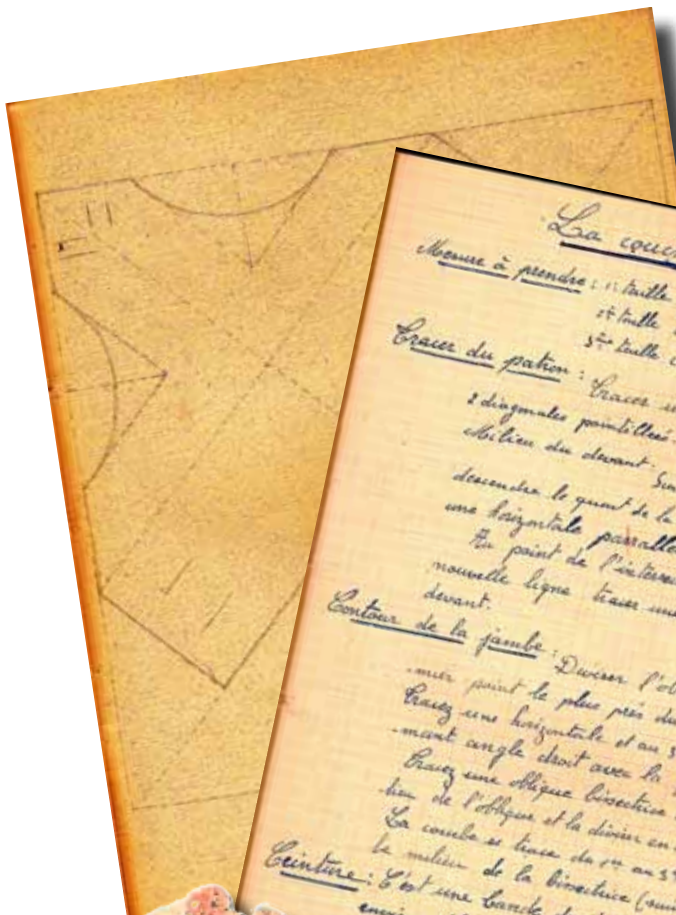 La
Mesure à prendre : 1: taille
2è taille
3ème taille
Tracer du patron : Tracer
2 diagonales pointillées
Milieu du devant.
descendre le quart de la
une horizontale parallè
Au point de l'interse
nouvelle ligne tracer une
devant.
Contour de la jambe : Diviser l'ob
-mier point le plus près du
Tracez une horizontale et au 3
-mant angle droit avec la
Tracez une oblique bissectrice
-lieu de l'oblique et la diviser en
La courbe se trace du 1er au 3
le milieu de la bissectrice
Ceinture : C'est une bande